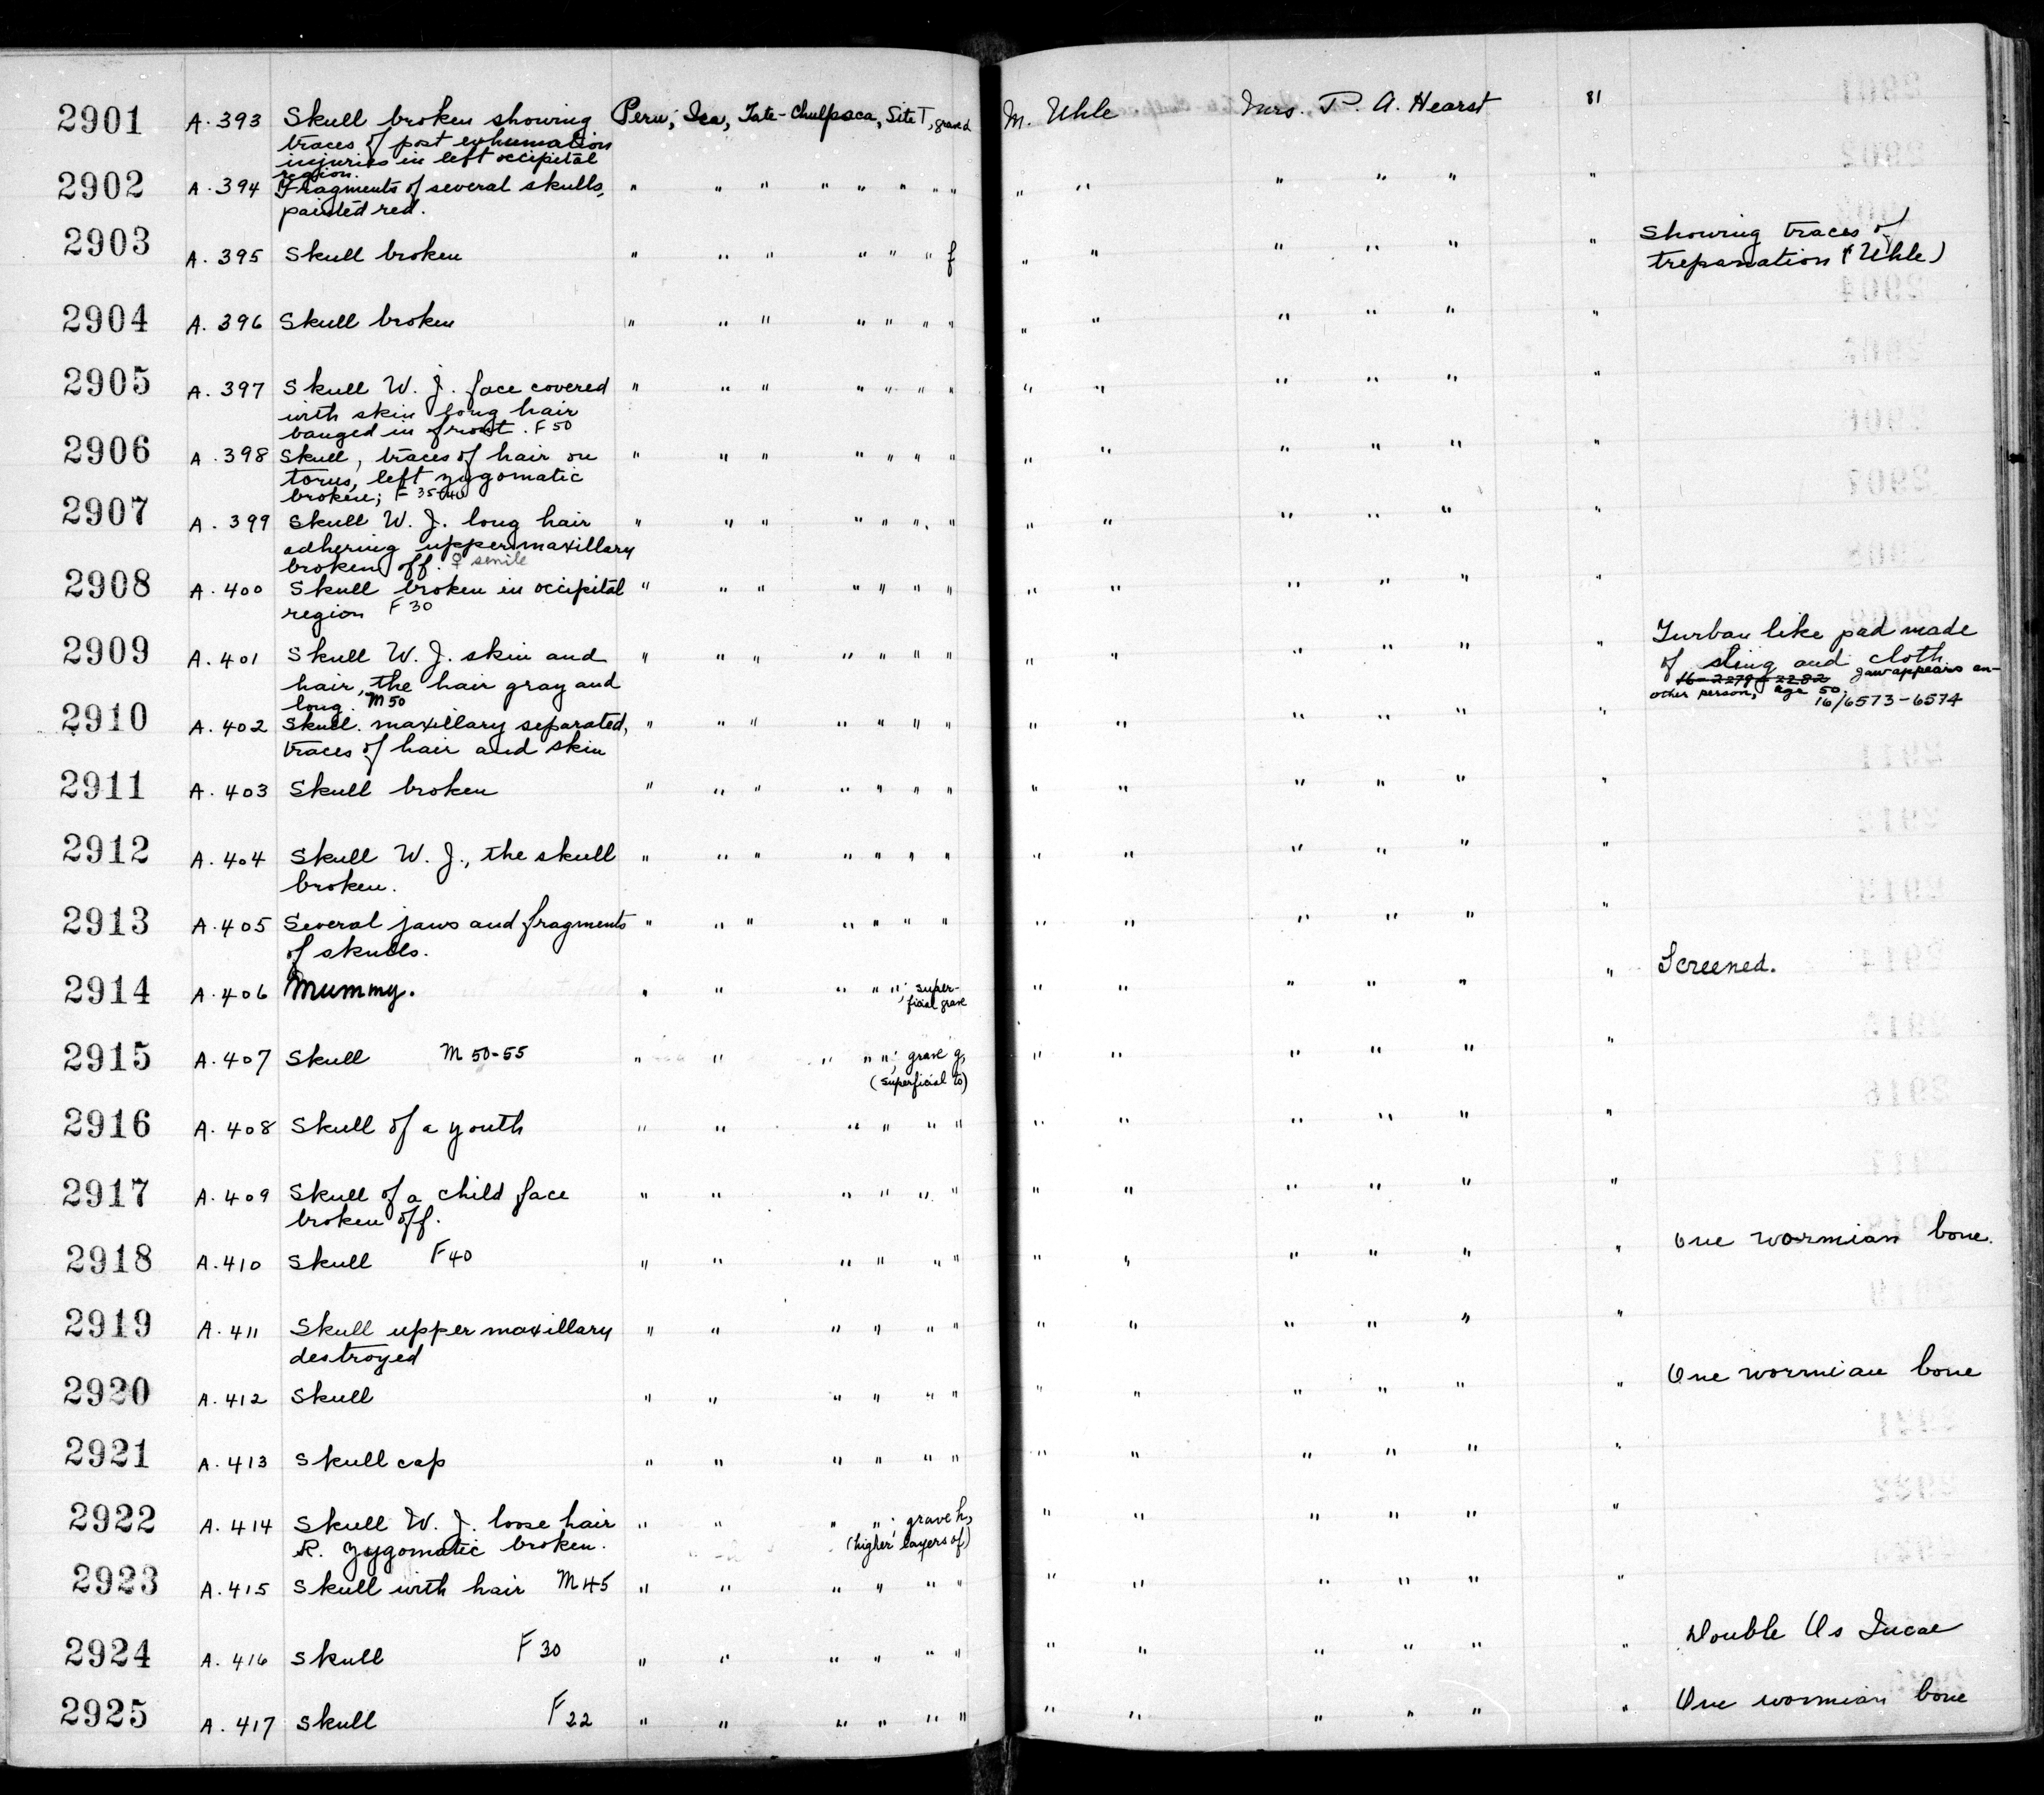 2901 A.393 Skull broken showing Peru; Ica, Tate-Chulpaca, Site T, grave d M. Uhle Mrs. P. A. Hearst 81
traces of post exhumation
injuries in left occipital
region.
2902 A.394 Fragments of several skulls, " " " " " " " " " " " " " "
painted red.
2903 A.395 Skull broken " " " " " " f " " " " " " Showing traces of
trepanation (Uhle)
2904 A.396 Skull broken " " " " " " " " " " " " "
2905 A.397 Skull W. J. face covered " " " " " " " " " " " " "
with skin long hair
banged in front. F 50
2906 A.398 Skull, traces of hair on " " " " " " " " " " " " "
torus, left zygomatic
broken; F 35-40
2907 A.399 Skull W. J. long hair " " " " " " " " " " " " "
adhering upper maxillary
broken off. ♀ senile
2908 A.400 Skull broken in occipital " " " " " " " " " " " " "
region F 30
2909 A.401 Skull W. J. skin and " " " " " " " " " " " " " Turban like pad made
hair, the hair gray and of sling and cloth
long. M 50 16-2279-2282 Jaw appears an-
other person, age 50.
16/6573-6574
2910 A.402 Skull. maxillary separated, " " " " " " " " " " " " "
traces of hair and skin
2911 A.403 Skull broken " " " " " " " " " " " " "
2912 A.404 Skull W. J., the skull " " " " " " " " " " " " "
broken.
2913 A.405 Several jaws and fragments " " " " " " " " " " " " "
of skulls.
2914 A.406 Mummy. " " " " "; super- " " " " " " Screened.
ficial grave
2915 A.407 Skull M 50-55 " " " " "; grave g, " " " " " "
(superficial to)
2916 A.408 Skull of a youth " " " " " " " " " " " "
2917 A.409 Skull of a child face " " " " " " " " " " " "
broken off.
2918 A.410 Skull F 40 " " " " " " " " " " " " One wormian bone.
2919 A.411 Skull upper maxillary " " " " " " " " " " " "
destroyed
2920 A.412 Skull " " " " " " " " " " " " One wormian bone
2921 A.413 Skull cap " " " " " " " " " " " "
2922 A.414 Skull W. J. loose hair " " " "; grave h, " " " " " "
R. zygomatic broken. (higher layers of)
2923 A.415 Skull with hair M 45 " " " " " " " " " " " "
2924 A.416 Skull F 30 " " " " " " " " " " " " Double Os Incae
2925 A.417 Skull F 22 " " " " " " " " " " " " One wormian bone